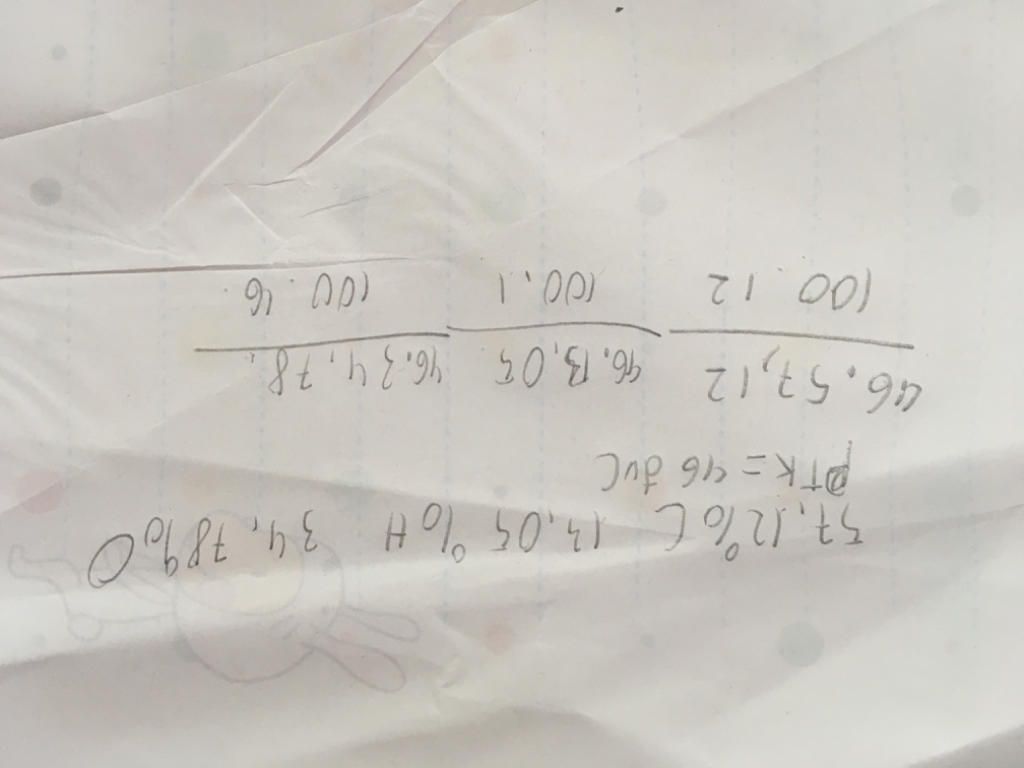 57,12% C 13,05% H 34,78% O
PTK = 46 đvC
46.57,12 46.13,05 46.34,78
100.12 100.1 100.16